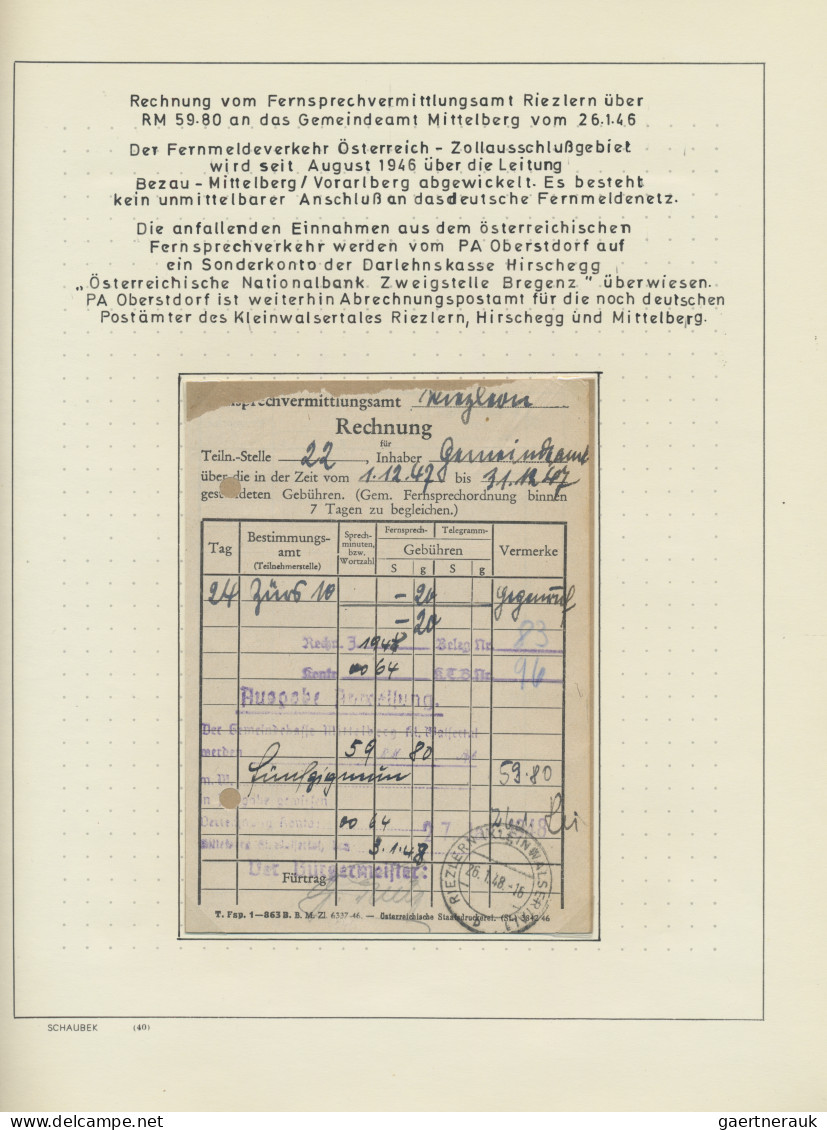 Rechnung vom Fernsprechvermittlungsamt Riezlern über
RM 59.80 an das Gemeindeamt Mittelberg vom 26.1.46
Der Fernmeldeverkehr Österreich - Zollausschlußgebiet
wird seit August 1946 über die Leitung
Bezau - Mittelberg/Vorarlberg abgewickelt. Es besteht
kein unmittelbarer Anschluß an dasdeutsche Fernmeldenetz.
Die anfallenden Einnahmen aus dem österreichischen
Fernsprechverkehr werden vom PA Oberstdorf auf
ein Sonderkonto der Darlehnskasse Hirschegg
„Österreichische Nationalbank Zweigstelle Bregenz" überwiesen.
PA Oberstdorf ist weiterhin Abrechnungspostamt für die noch deutschen
Postämter des Kleinwalsertales Riezlern, Hirschegg und Mittelberg.
sprechvermittlungsamt Riezlern
Rechnung
für
Teiln.-Stelle 22, Inhaber Gemeindeamt
über die in der Zeit vom 1.12.47 bis 31.12.47
gestundeten Gebühren. (Gem. Fernsprechordnung binnen
7 Tagen zu begleichen.)
Tag Bestimmungs-amt (Teilnehmerstelle) Sprech-minuten, bzw. Wortzahl Fernsprech- Telegramm- Gebühren S g S g Vermerke
24 Zürs 10 - 20
- 20
Rechn. J. 1948 Beleg Nr. 83
Konto 64 K.T.B.Nr. 96
Ausgabe Anweisung.
Der Gemeindekasse Mittelberg kl. Walsertal
werden 59 80
m. W. 59.80
in Ausgabe gewiesen
Verrechnung Konto 64
Mittelberg, den 3.1.48
Der Bürgermeister:
Fürtrag
RIEZLERN (KLEINWALSERTAL)
26.1.48.-16
T. Fsp. 1—863 B. B. M. Zl. 6337-46. — Österreichische Staatsdruckerei. (St.) 3842 46
SCHAUBEK (40)
www.delcampe.net
gaertnerauk